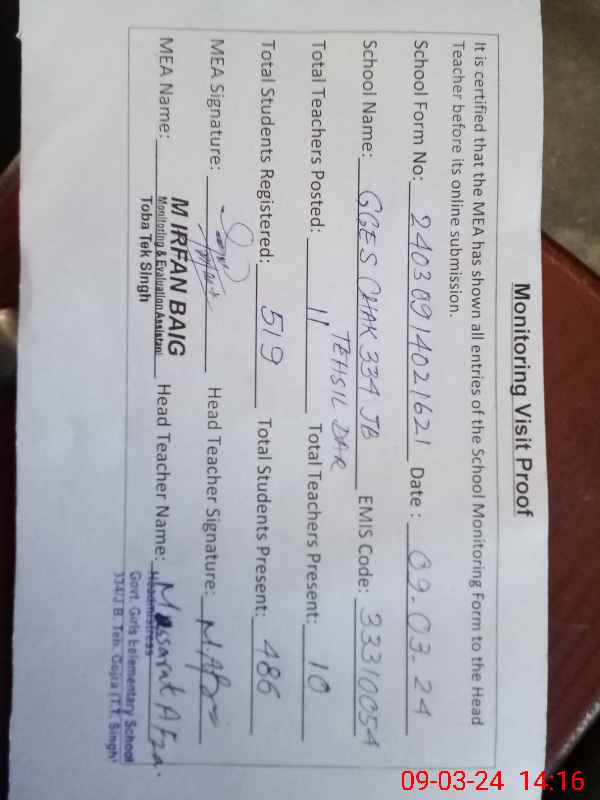 Monitoring Visit Proof
It is certified that the MEA has shown all entries of the School Monitoring Form to the Head
Teacher before its online submission.
School Form No: 24030914021621 Date : 09.03.24
School Name: GGES CHAK 334 JB EMIS Code: 33310054
TEHSIL DAR
Total Teachers Posted: 11 Total Teachers Present: 10
Total Students Registered: 519 Total Students Present: 486
MEA Signature: Head Teacher Signature:
MEA Name: M IRFAN BAIG Head Teacher Name: Massarat Afza.
Monitoring & Evaluation Assistant
Toba Tek Singh
Headmistress
Govt. Girls Eelementary School
334/J B. Teh. Gojra (T.T. Singh)
09-03-24 14:16